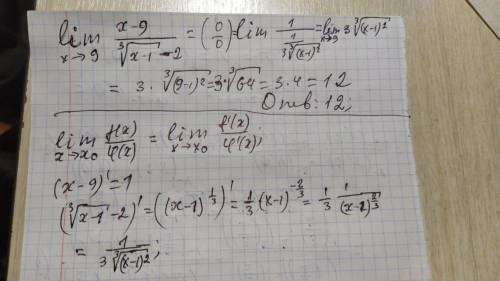 lim x→9 (x-9)/(∛(x-1) -2) = (0/0) = lim 1/(1/(3∛(x-1)²)) = lim x→9 3∛(x-1)²
= 3·∛(9-1)² = 3·∛64 = 3·4 = 12
Отв: 12;
lim x→x₀ f(x)/φ(x) = lim x→x₀ f'(x)/φ'(x);
(x-9)' = 1
(∛(x-1) -2)' = ((x-1)^(1/3))' = 1/3 (x-1)^(-2/3) = 1/3 · 1/(x-1)^(2/3)
= 1/(3∛(x-1)²);